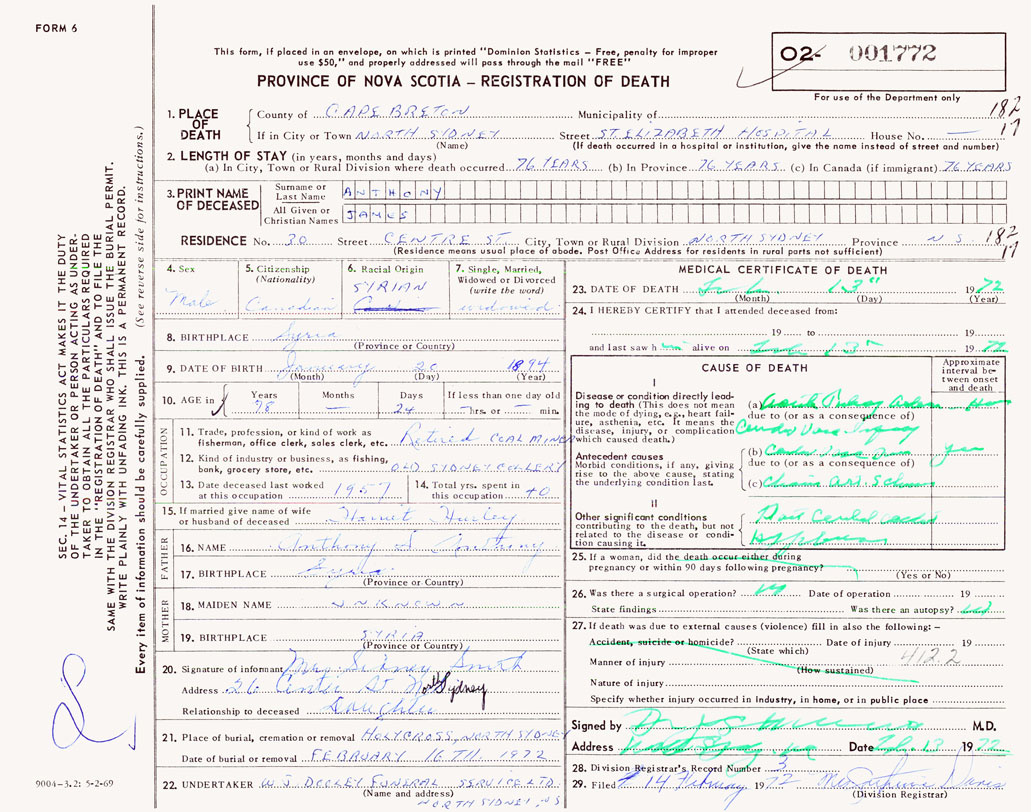 FORM 6
This form, if placed in an envelope, on which is printed "Dominion Statistics – Free, penalty for improper
use $50," and properly addressed will pass through the mail "FREE"
PROVINCE OF NOVA SCOTIA – REGISTRATION OF DEATH
02- 001772
For use of the Department only
182
17
1. PLACE OF DEATH
County of CAPE BRETON Municipality of
If in City or Town NORTH SYDNEY Street ST ELIZABETH HOSPITAL House No. —
(Name) (If death occurred in a hospital or institution, give the name instead of street and number)
2. LENGTH OF STAY (in years, months and days)
(a) In City, Town or Rural Division where death occurred 76 YEARS (b) In Province 76 YEARS (c) In Canada (if immigrant) 76 YEARS
3. PRINT NAME OF DECEASED
Surname or Last Name ANTHONY
All Given or Christian Names JAMES
RESIDENCE No. 30 Street CENTRE ST. City, Town or Rural Division NORTH SYDNEY Province N S 182
17
(Residence means usual place of abode. Post Office Address for residents in rural parts not sufficient)
4. Sex Male
5. Citizenship (Nationality) Canadian
6. Racial Origin SYRIAN
7. Single, Married, Widowed or Divorced (write the word) widowed
8. BIRTHPLACE Syria
(Province or Country)
9. DATE OF BIRTH January 20 1894
(Month) (Day) (Year)
10. AGE in Years 78 Months — Days 24 If less than one day old — hrs. or — min.
OCCUPATION
11. Trade, profession, or kind of work as
fisherman, office clerk, sales clerk, etc. Retired COAL MINER
12. Kind of industry or business, as fishing,
bank, grocery store, etc. OLD SYDNEY COLLERY
13. Date deceased last worked at this occupation 1957
14. Total yrs. spent in this occupation 40
15. If married give name of wife
or husband of deceased Hurley
FATHER
16. NAME Anthony Anthony
17. BIRTHPLACE Syria
(Province or Country)
MOTHER
18. MAIDEN NAME UNKNOWN
19. BIRTHPLACE SYRIA
(Province or Country)
20. Signature of informant Mrs. Sidney Smith
Address 26 Center St North Sydney
Relationship to deceased Daughter
21. Place of burial, cremation or removal HOLYCROSS, NORTH SYDNEY
Date of burial or removal FEBRUARY 16 TH. 1972
22. UNDERTAKER W. J. DOOLEY FUNERAL SERVICE LTD.
(Name and address) NORTH SYDNEY, NS
MEDICAL CERTIFICATE OF DEATH
23. DATE OF DEATH Feb 13th 1972
(Month) (Day) (Year)
24. I HEREBY CERTIFY that I attended deceased from:
19 to 19
and last saw him alive on Feb 13th 1972
CAUSE OF DEATH
Approximate interval between onset and death
I
Disease or condition directly leading to death (This does not mean the mode of dying, e.g., heart failure, asthenia, etc. It means the disease, injury, or complication which caused death.)
(a)
due to (or as a consequence of)
Antecedent causes
Morbid conditions, if any, giving rise to the above cause, stating the underlying condition last.
(b)
due to (or as a consequence of)
(c)
II
Other significant conditions
contributing to the death, but not related to the disease or condition causing it.
25. If a woman, did the death occur either during
pregnancy or within 90 days following pregnancy?
(Yes or No)
26. Was there a surgical operation? Date of operation 19
State findings Was there an autopsy?
27. If death was due to external causes (violence) fill in also the following:–
Accident, suicide or homicide? Date of injury 19
(State which)
Manner of injury 4122
(How sustained)
Nature of injury
Specify whether injury occurred in industry, in home, or in public place
Signed by M.D.
Address Date Feb. 13 1972
28. Division Registrar's Record Number 3
29. Filed 14 February 1972
(Division Registrar)
SEC. 14 – VITAL STATISTICS ACT MAKES IT THE DUTY
OF THE UNDERTAKER OR PERSON ACTING AS UNDER-
TAKER TO OBTAIN ALL THE PARTICULARS REQUIRED
IN THE "REGISTRATION OF DEATH" AND TO FILE THE
SAME WITH THE DIVISION REGISTRAR WHO SHALL ISSUE THE BURIAL PERMIT.
WRITE PLAINLY WITH UNFADING INK. THIS IS A PERMANENT RECORD.
Every item of information should be carefully supplied. (See reverse side for instructions.)
9004-3.2: 5-2-69